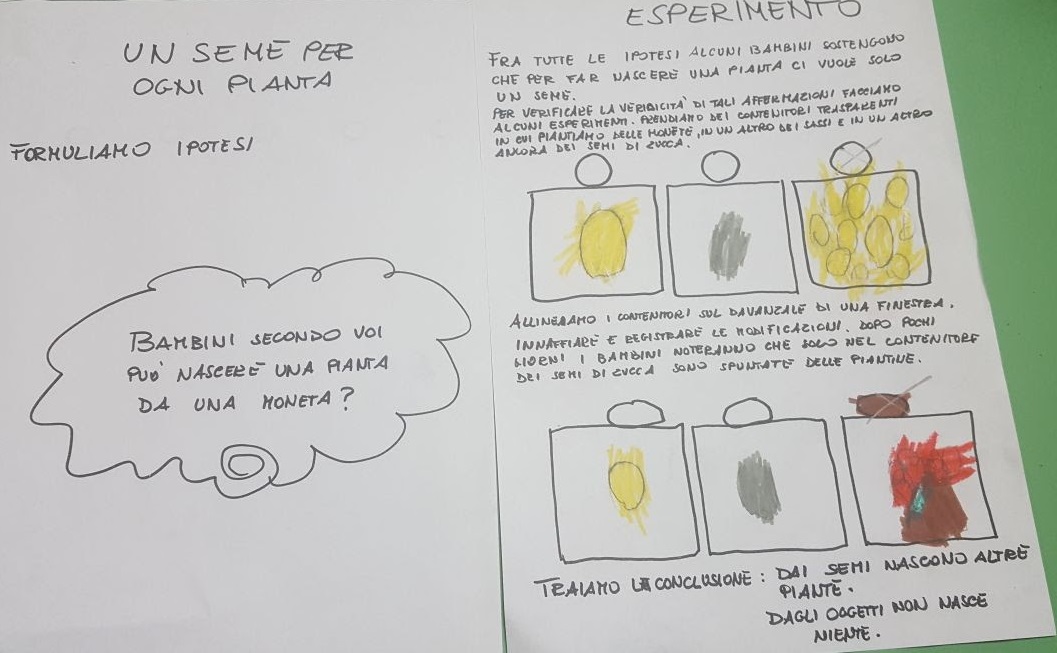 UN SEME PER
OGNI PIANTA
FORMULIAMO IPOTESI
BAMBINI SECONDO VOI
PUO' NASCERE UNA PIANTA
DA UNA MONETA?
ESPERIMENTO
FRA TUTTE LE IPOTESI ALCUNI BAMBINI SOSTENGONO
CHE PER FAR NASCERE UNA PIANTA CI VUOLE SOLO
UN SEME.
PER VERIFICARE LA VERIDICITÀ DI TALI AFFERMAZIONI FACCIAMO
ALCUNI ESPERIMENTI. PRENDIAMO DEI CONTENITORI TRASPARENTI
IN CUI PIANTIAMO DELLE MONETE, IN UN ALTRO DEI SASSI E IN UN ALTRO
ANCORA DEI SEMI DI ZUCCA.
ALLINEAMO I CONTENITORI SUL DAVANZALE DI UNA FINESTRA.
INNAFFIARE E REGISTRARE LE MODIFICAZIONI. DOPO POCHI
GIORNI I BAMBINI NOTERANNO CHE SOLO NEL CONTENITORE
DEI SEMI DI ZUCCA SONO SPUNTATE DELLE PIANTINE.
TRAIAMO LA CONCLUSIONE: DAI SEMI NASCONO ALTRE
PIANTE.
DAGLI OGGETTI NON NASCE
NIENTE.